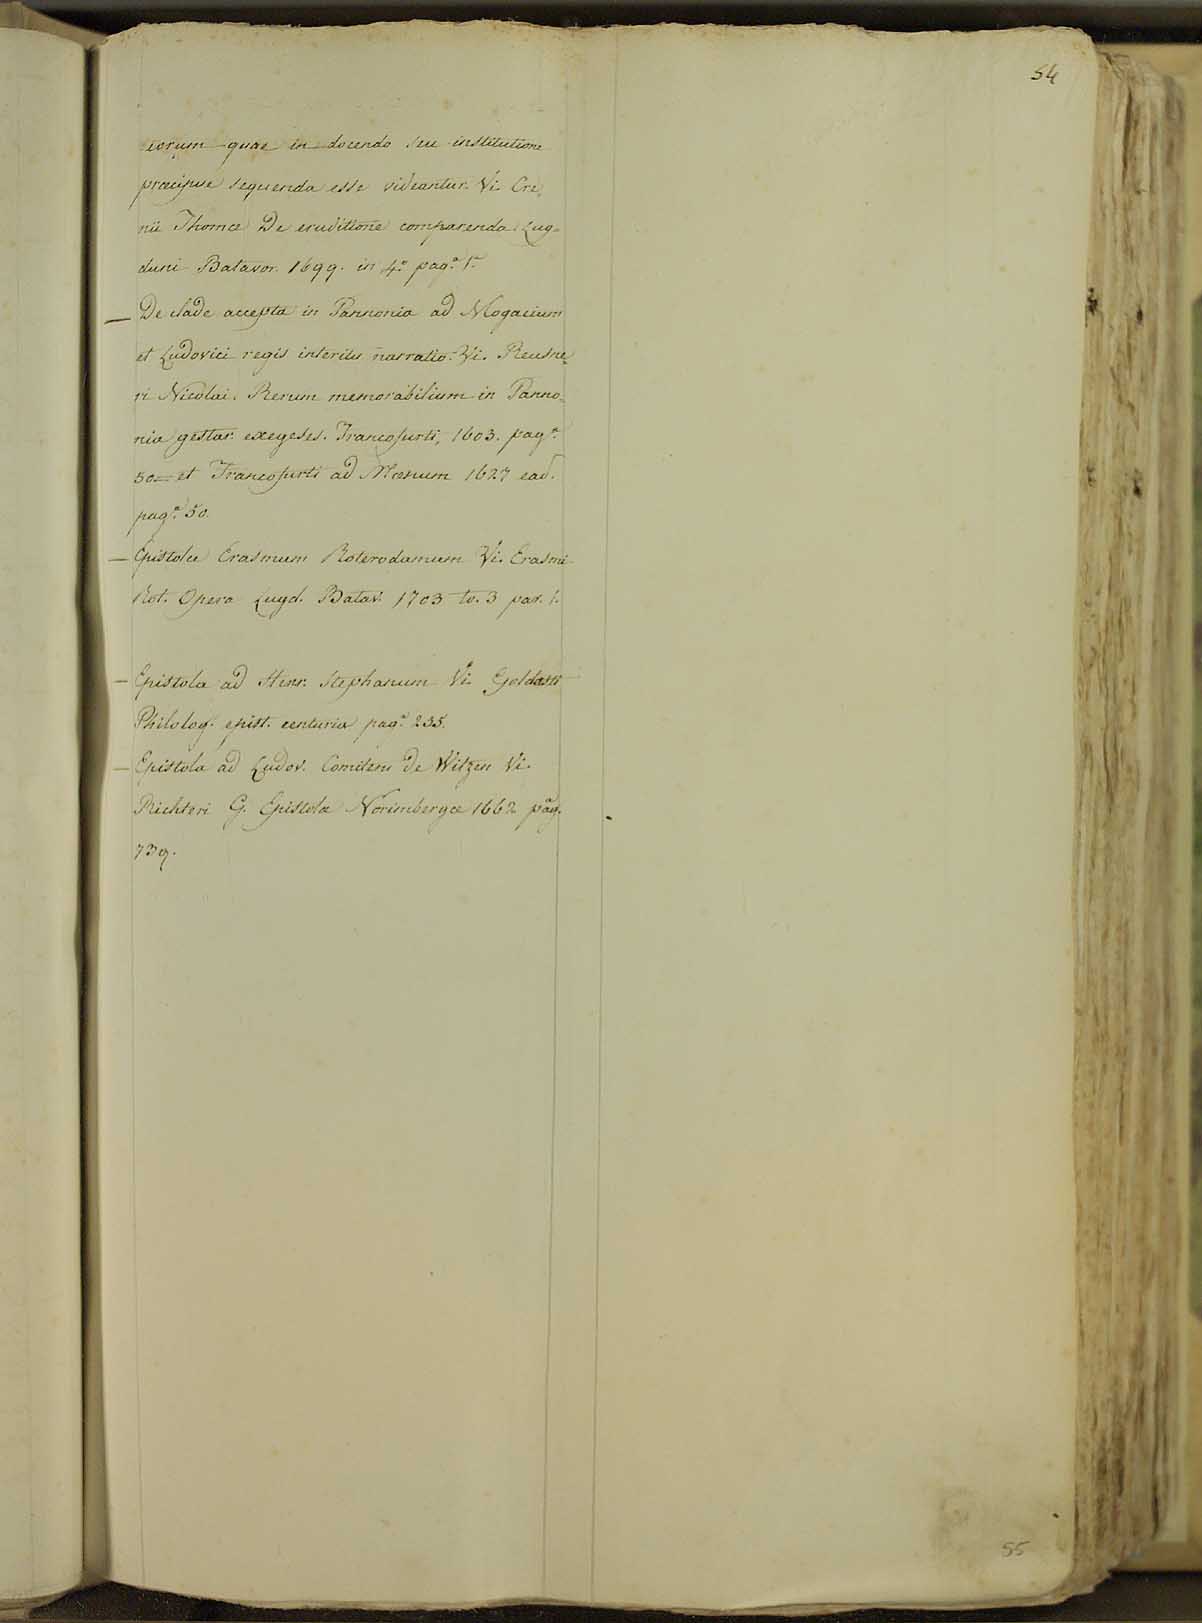 54
eorum quae in docendo seu institutione
præcipue sequenda esse videantur. Vi. Cre¸
nii Thomæ De eruditione comparenda Lug=
duni Batavor. 1699. in 4.º pag.ª 1.
— De clade accepta in Pannonia ad Mogacium
et Ludovici regis interitu narratio. Vi. Reusne¸
ri Nicolai. Rerum memorabilium in Panno=
nia gestar. exegeses. Francofurti, 1603. pag.ª
50= et Francofurti ad Mœnum 1627 ead.
pag.ª 50.
— Epistolæ Erasmum Roterodamum Vi. Erasmi
Rot. Opera Lugd. Batav. 1703 to. 3 par. 1.
— Epistola ad Henr. Stephanum Vi. Goldasti
Philolog. epist. centuria pag.ª 235.
— Epistola ad Ludov. Comitem De Witzen Vi.
Richteri G. Epistolæ Norimbergæ 1662 pag.
739.
55